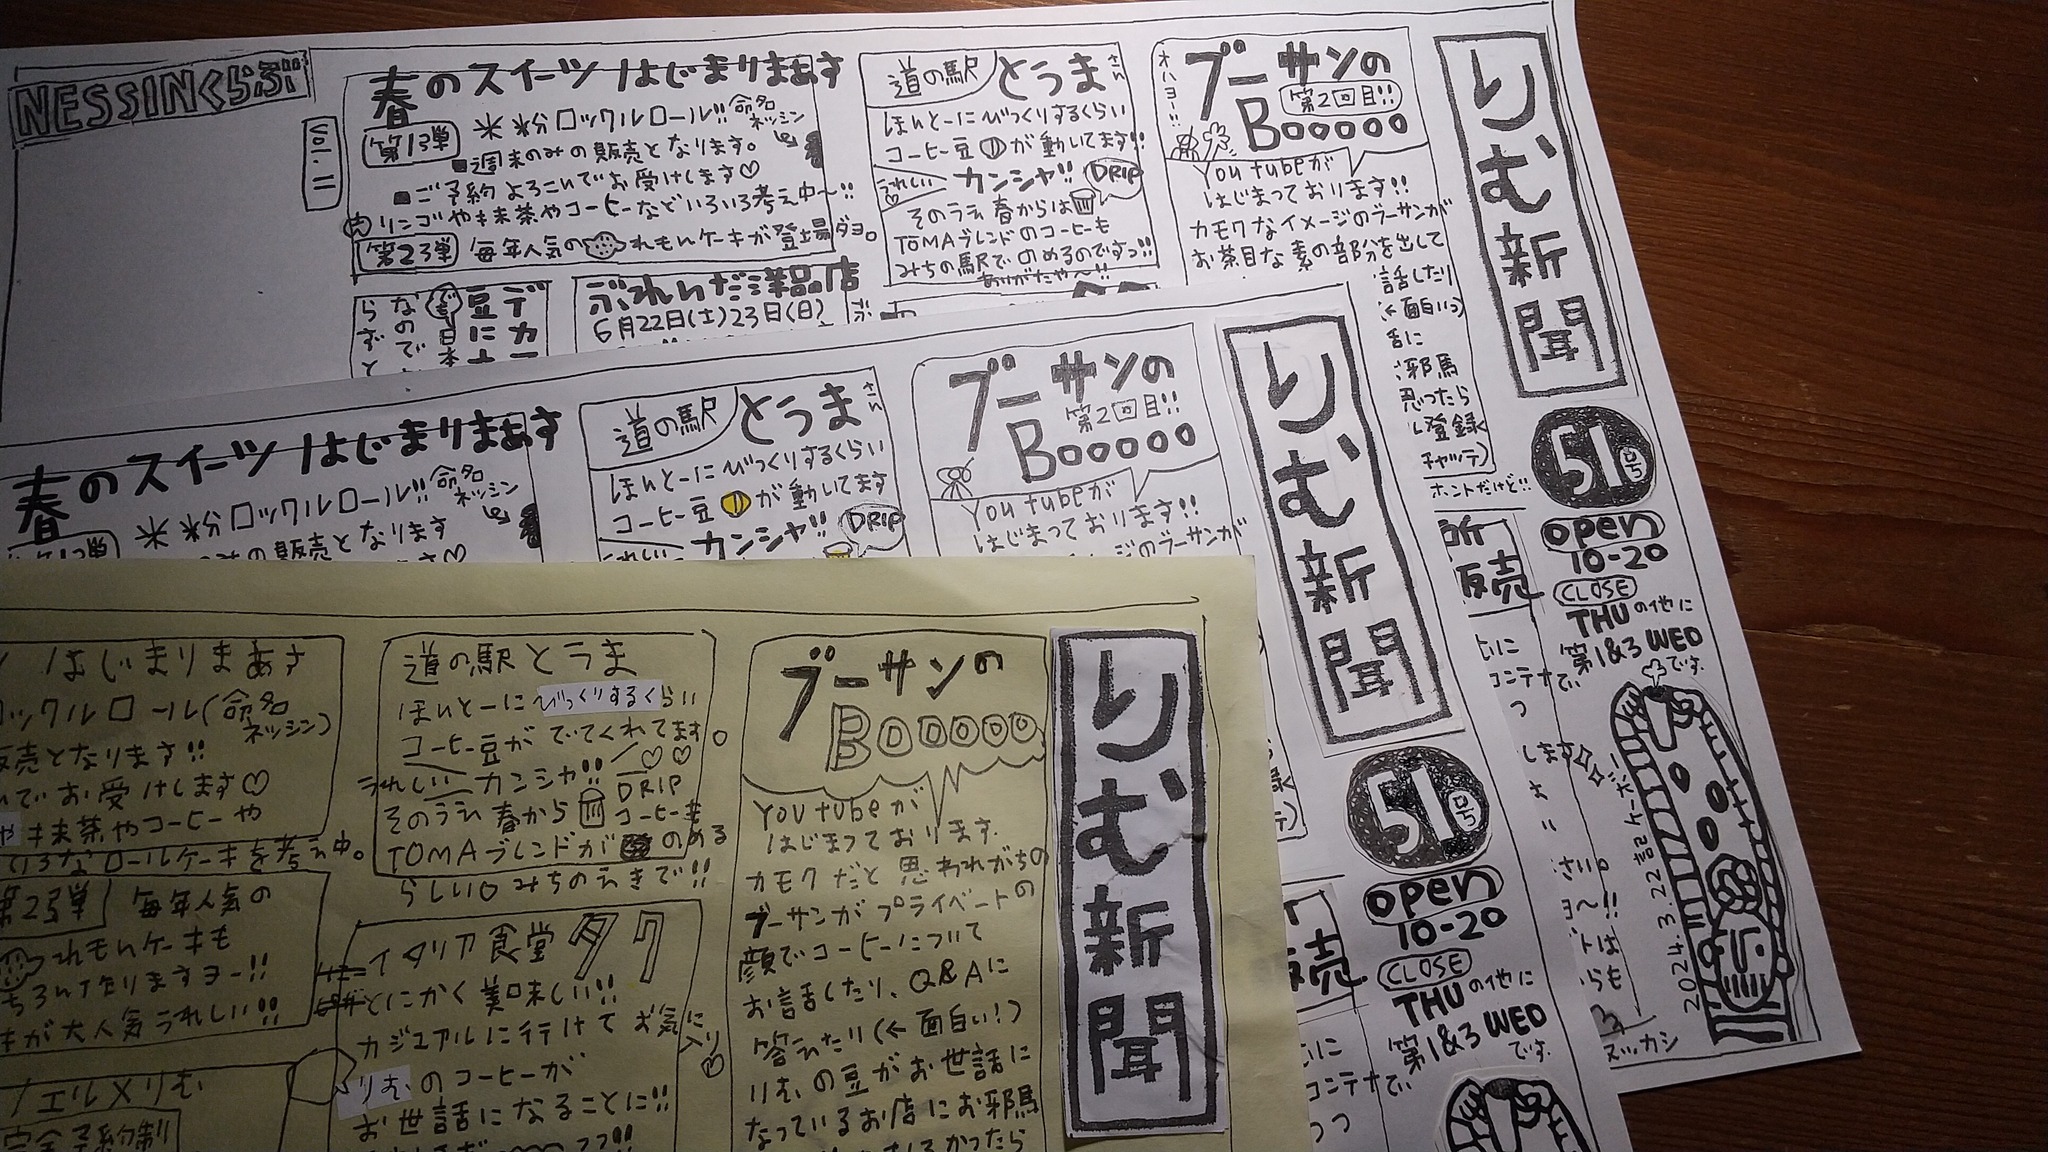 りむ新聞
51号
open
10-20
CLOSE
THUの他に
第1&3 WED
です。
2024.3.22記
ブーサンの
第2回目!!
Booooo
オハヨー!!
You tubeが
はじまっております!!
カモクなイメージのブーサンが
お茶目な素の部分を出して
話したり
(←面白いっ)
舌に
邪馬
思ったら
登録
チャッテ)
ホントだけど!!
道の駅
とうまさん
ほんとーにびっくりするくらい
コーヒー豆が動いてます!!
うれしい カンシャ!! DRIP
そのうえ春からは
TOMAブレンドのコーヒーも
みちの駅でのめるのですっ!!
ありがたや〜!!
春のスイーツはじまりまぁす
第1弾
米粉ロックルロール!! 命名ネッシン
■週末のみの販売となります。
■ご予約よろこんでお受けします♡
リンゴや抹茶やコーヒーなどいろいろ考え中〜!!
第2弾 毎年人気のれもんケーキが登場ダヨ。
NESSINくらぶ
vol.二
ぷれいんだ洋品店
6月22日(土)23日(日)
りむ新聞
51号
open
10-20
CLOSE
THUの他に
第1&3 WED
です。
ブーサンの
第2回目!!
Booooo
You tubeが
はじまっております!!
ージのブーサンが
道の駅
とうまさん
ほんとーにびっくりするくらい
コーヒー豆が動いてます
うれしい カンシャ!! DRIP
春のスイーツはじまりまぁす
米粉ロックルロール!! 命名ネッシン
のみの販売となります
りむ新聞
ブーサンの
Booooo
You tubeが
はじまっております.
カモクだと思われがちの
ブーサンがプライベートの
顔でコーヒーについて
お話したり、Q&Aに
答えたり(←面白い!)
りむの豆がお世話に
なっているお店にお邪馬
道の駅とうま
ほんとーにびっくりするくらい
コーヒー豆がでてくれてます。
うれしい カンシャ!! ♡♡
DRIP
そのうえ春からコーヒーも
TOMAブレンドがのめる
らしい♡みちのえきで!!
イタリア食堂タク
とにかく美味しい!!
カジュアルに行けてお気に入り
りむのコーヒーが
お世話になることに!!
はじまりまぁす
ロックルロール(命名ネッシン)
販売となります!!
でお受けします♡
や抹茶やコーヒーや
いろなロールケーキを考え中。
第2弾 毎年人気の
れもんケーキも
もちろん作りますヨー!!
が大人気うれしい!!
ノエル×りむ
完全予約制